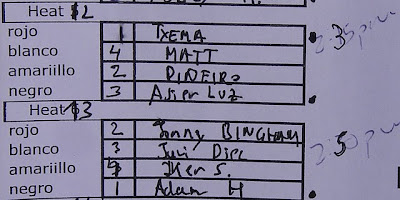 Heat 2
rojo 1 TXEMA
blanco 4 MATT
amariillo 2 PIÑEIRO
negro 3 Asier LUZ
Heat 3
rojo 2 Jonny BINGHAM
blanco 3
amariillo Iker S.
negro 1 Adam H